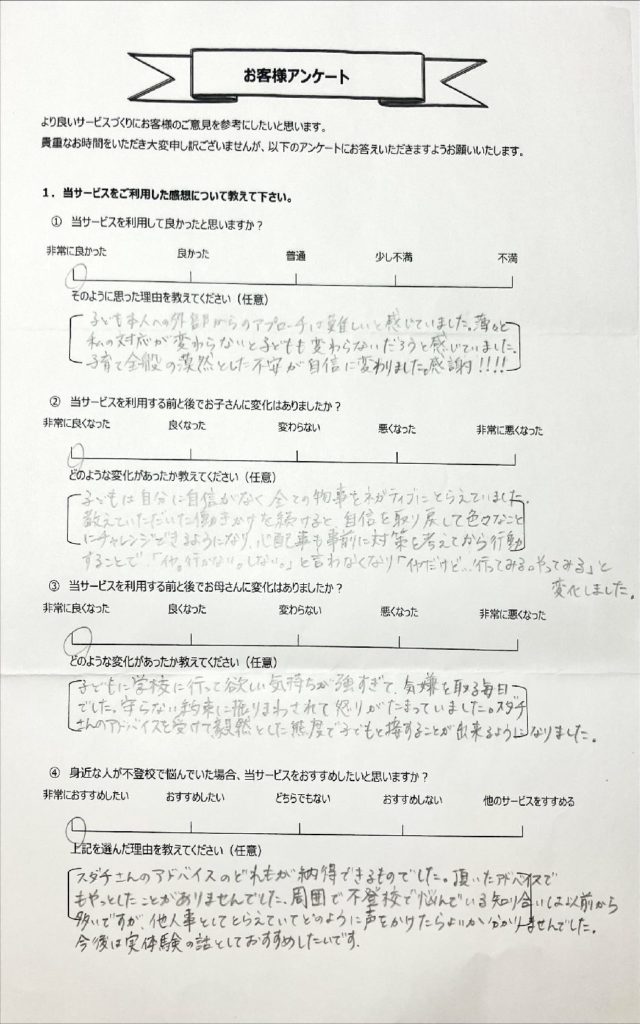 お客様アンケート
より良いサービスづくりにお客様のご意見を参考にしたいと思います。
貴重なお時間をいただき大変申し訳ございませんが、以下のアンケートにお答えいただきますようお願いいたします。
1.当サービスをご利用した感想について教えて下さい。
① 当サービスを利用して良かったと思いますか？
非常に良かった 良かった 普通 少し不満 不満
そのように思った理由を教えてください（任意）
子ども本人への外部からのアプローチは難しいと感じていました。薄々と
私の対応が変わらないと子どもも変わらないだろうと感じていました。
子育て全般の漠然とした不安が自信に変わりました。感謝!!!!
② 当サービスを利用する前と後でお子さんに変化はありましたか？
非常に良くなった 良くなった 変わらない 悪くなった 非常に悪くなった
どのような変化があったか教えてください（任意）
子どもは自分に自信がなく全ての物事をネガティブにとらえていました。
教えていただいた働きかけを続けると、自信を取り戻して色々なこと
にチャレンジできるようになり、心配事も事前に対策を考えてから行動
することで、「イヤ。行かない。しない。」と言わなくなり「イヤだけど…行ってみる。やってみる」と
変化しました。
③ 当サービスを利用する前と後でお母さんに変化はありましたか？
非常に良くなった 良くなった 変わらない 悪くなった 非常に悪くなった
どのような変化があったか教えてください（任意）
子どもに学校に行って欲しい気持ちが強すぎて、気嫌を取る毎日
でした。守らない約束に振りまわされて怒りがたまっていました。スダチ
さんのアドバイスを受けて毅然とした態度で子どもと接することが出来るようになりました。
④ 身近な人が不登校で悩んでいた場合、当サービスをおすすめしたいと思いますか？
非常におすすめしたい おすすめしたい どちらでもない おすすめしない 他のサービスをすすめる
上記を選んだ理由を教えてください（任意）
スダチさんのアドバイスのどれもが納得できるものでした。頂いたアドバイスで
もやっとしたことがありませんでした。周囲で不登校で悩んでいる知り合いは以前から
多いですが、他人事としてとらえていてどのように声をかけたらよいか分かりませんでした。
今後は実体験の話としておすすめしたいです。